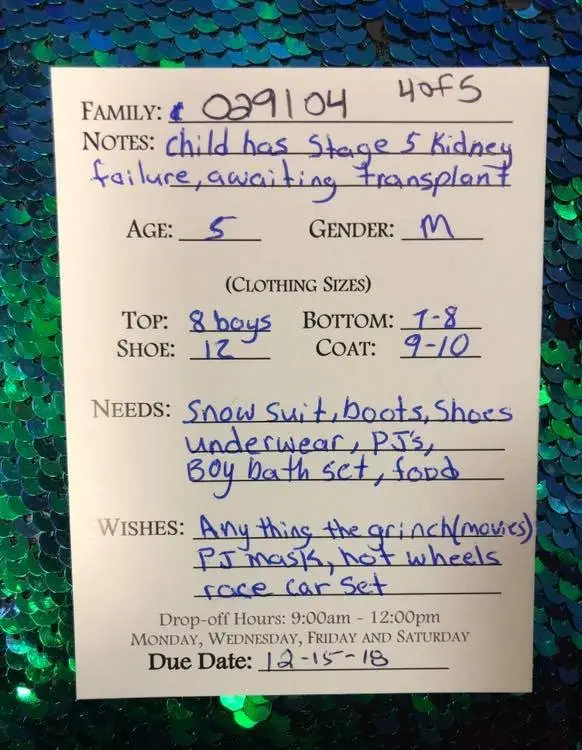 FAMILY: 029104 4 of 5
NOTES: child has Stage 5 Kidney
failure, awaiting transplant
AGE: 5 GENDER: M
(CLOTHING SIZES)
TOP: 8 boys BOTTOM: 7-8
SHOE: 12 COAT: 9-10
NEEDS: Snow suit, boots, Shoes
underwear, PJ's,
Boy bath set, food
WISHES: Any thing the grinch (movies)
PJ mask, hot wheels
race car set
Drop-off Hours: 9:00am - 12:00pm
MONDAY, WEDNESDAY, FRIDAY AND SATURDAY
Due Date: 12-15-18